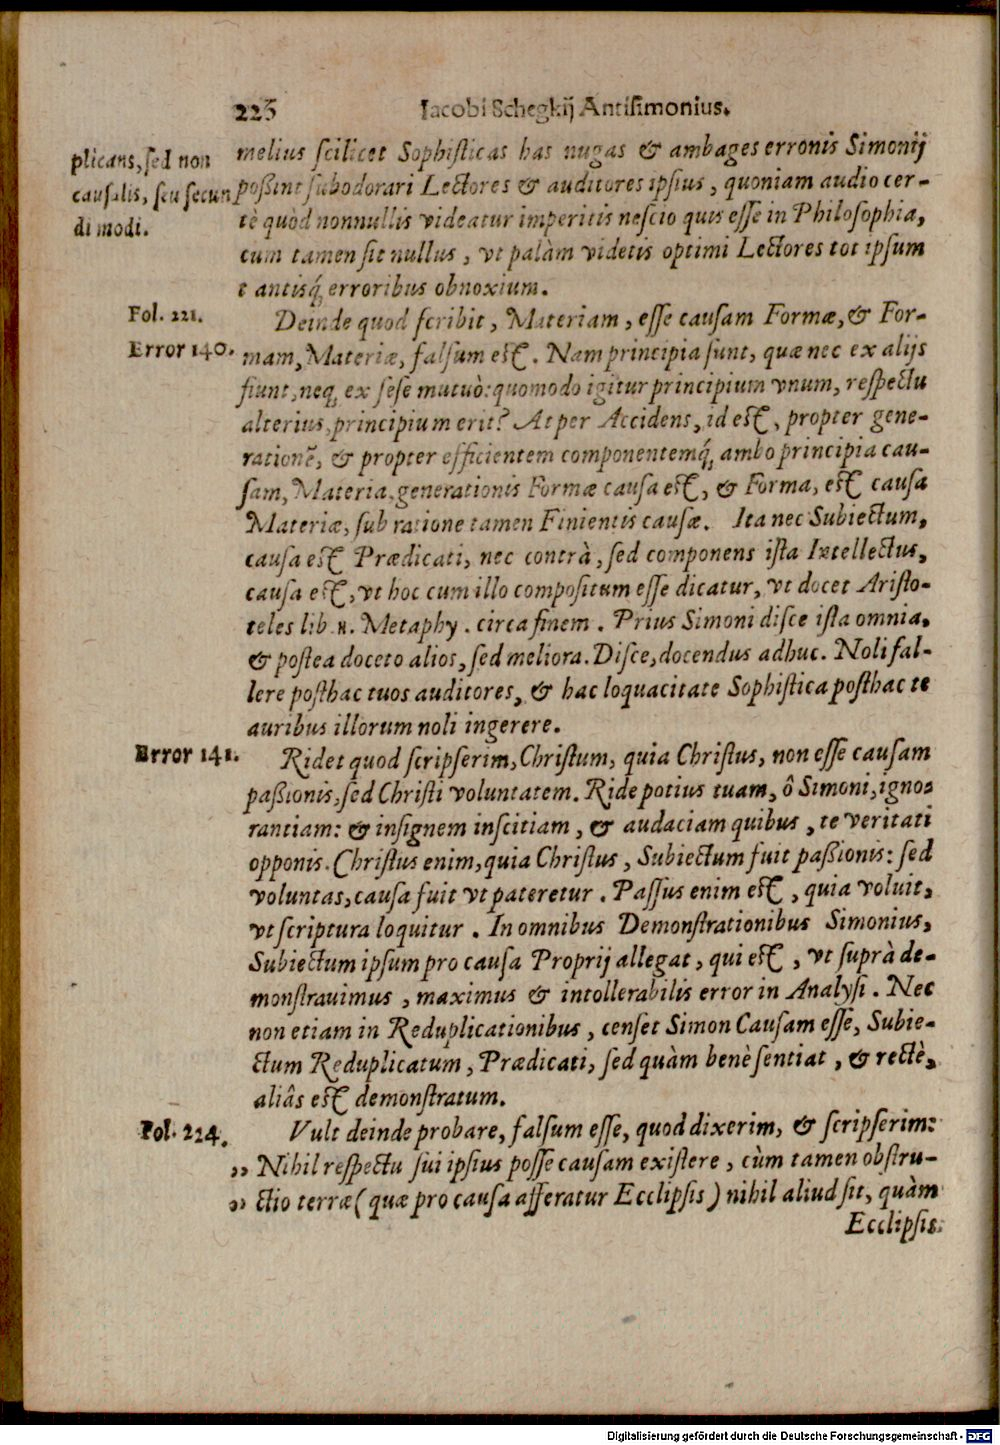 226 Iacobi Schegkij Antisimonius.
plicans, sed non
causalis, seu secun
di modi.
melius scilicet Sophisticas has nugas & ambages erronis Simonij
poßint subodorari Lectores & auditores ipsius, quoniam audio cer-
tè quòd nonnullis videatur imperitis nescio quis esse in Philosophia,
cum tamen sit nullus, vt palàm videtis optimi Lectores tot ipsum
t antisq́; erroribus obnoxium.
Fol. 221.
Error 140.
Deinde quod scribit, Materiam, esse causam Formæ, & For-
mam, Materiæ, falsum est. Nam principia sunt, quæ nec ex alijs
fiunt, neq; ex sese mutuò: quomodo igitur principium vnum, respectu
alterius, principium erit? At per Accidens, id est, propter gene-
rationẽ, & propter efficientem componentemq́; ambo principia cau-
sam, Materia, generationis Formæ causa est, & Forma, est causa
Materiæ, sub ratione tamen Finientis causæ. Ita nec Subiectum,
causa est Prædicati, nec contrà, sed componens ista Intellectus,
causa est, vt hoc cum illo compositum esse dicatur, vt docet Aristo-
teles lib. H. Metaphy. circa finem. Prius Simoni disce ista omnia,
& postea doceto alios, sed meliora. Disce, docendus adhuc. Noli fal-
lere posthac tuos auditores, & hac loquacitate Sophistica posthac te
auribus illorum noli ingerere.
Error 141.
Ridet quod scripserim, Christum, quia Christus, non esse causam
paßionis, sed Christi voluntatem. Ride potius tuam, ô Simoni, igno-
rantiam: & insignem inscitiam, & audaciam quibus, te veritati
opponis. Christus enim, quia Christus, Subiectum fuit paßionis: sed
voluntas, causa fuit vt pateretur. Passus enim est, quia voluit,
vt scriptura loquitur. In omnibus Demonstrationibus Simonius,
Subiectum ipsum pro causa Proprij allegat, qui est, vt suprà de-
monstrauimus, maximus & intollerabilis error in Analysi. Nec
non etiam in Reduplicationibus, censet Simon Causam esse, Subie-
ctum Reduplicatum, Prædicati, sed quàm benè sentiat, & rectè,
aliâs est demonstratum.
Fol. 224.
Vult deinde probare, falsum esse, quod dixerim, & scripserim:
„ Nihil respectu sui ipsius posse causam existere, cùm tamen obstru-
„ ctio terræ (quæ pro causa afferatur Ecclipsis) nihil aliud sit, quàm
Ecclipsis.
Digitalisierung gefördert durch die Deutsche Forschungsgemeinschaft - DFG